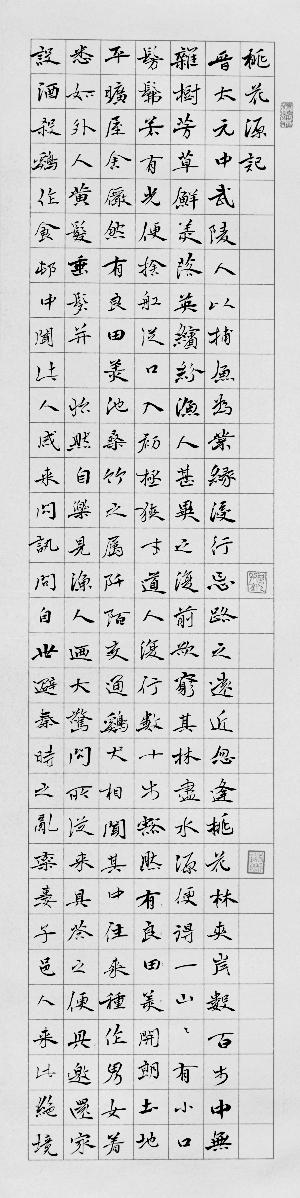 桃花源記
晉太元中武陵人以捕漁為業緣溪行忘路之遠近忽逢桃花林夾岸數百步中無
雜樹芳草鮮美落英繽紛漁人甚異之復前欲窮其林盡水源便得一山〻有小口
髣髴若有光便捨船從口入初極狹才道人復行數十步豁然有良田美開朗土地
平曠屋舍儼然有良田美池桑竹之屬阡陌交通鷄犬相聞其中往來種作男女着
悉如外人黃髮垂髫并怡然自樂見漁人迺大驚問所從來具答之便具邀還家
設酒殺鷄作食邨中聞此人咸來問訊問自世避秦時之亂率妻子邑人來此絕境